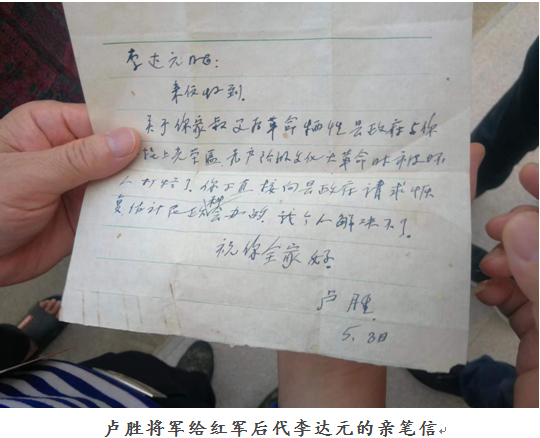 李达元同志:
来信收到.
关于你家叔父为革命牺牲县政府与你
挂上光荣匾无产阶级文化大革命时被坏
人打烂了.你可直接向县政府请求恢
复估计政府会办的,我个人解决不了.
祝你全家好.
卢胜
5.3日
卢胜将军给红军后代李达元的亲笔信